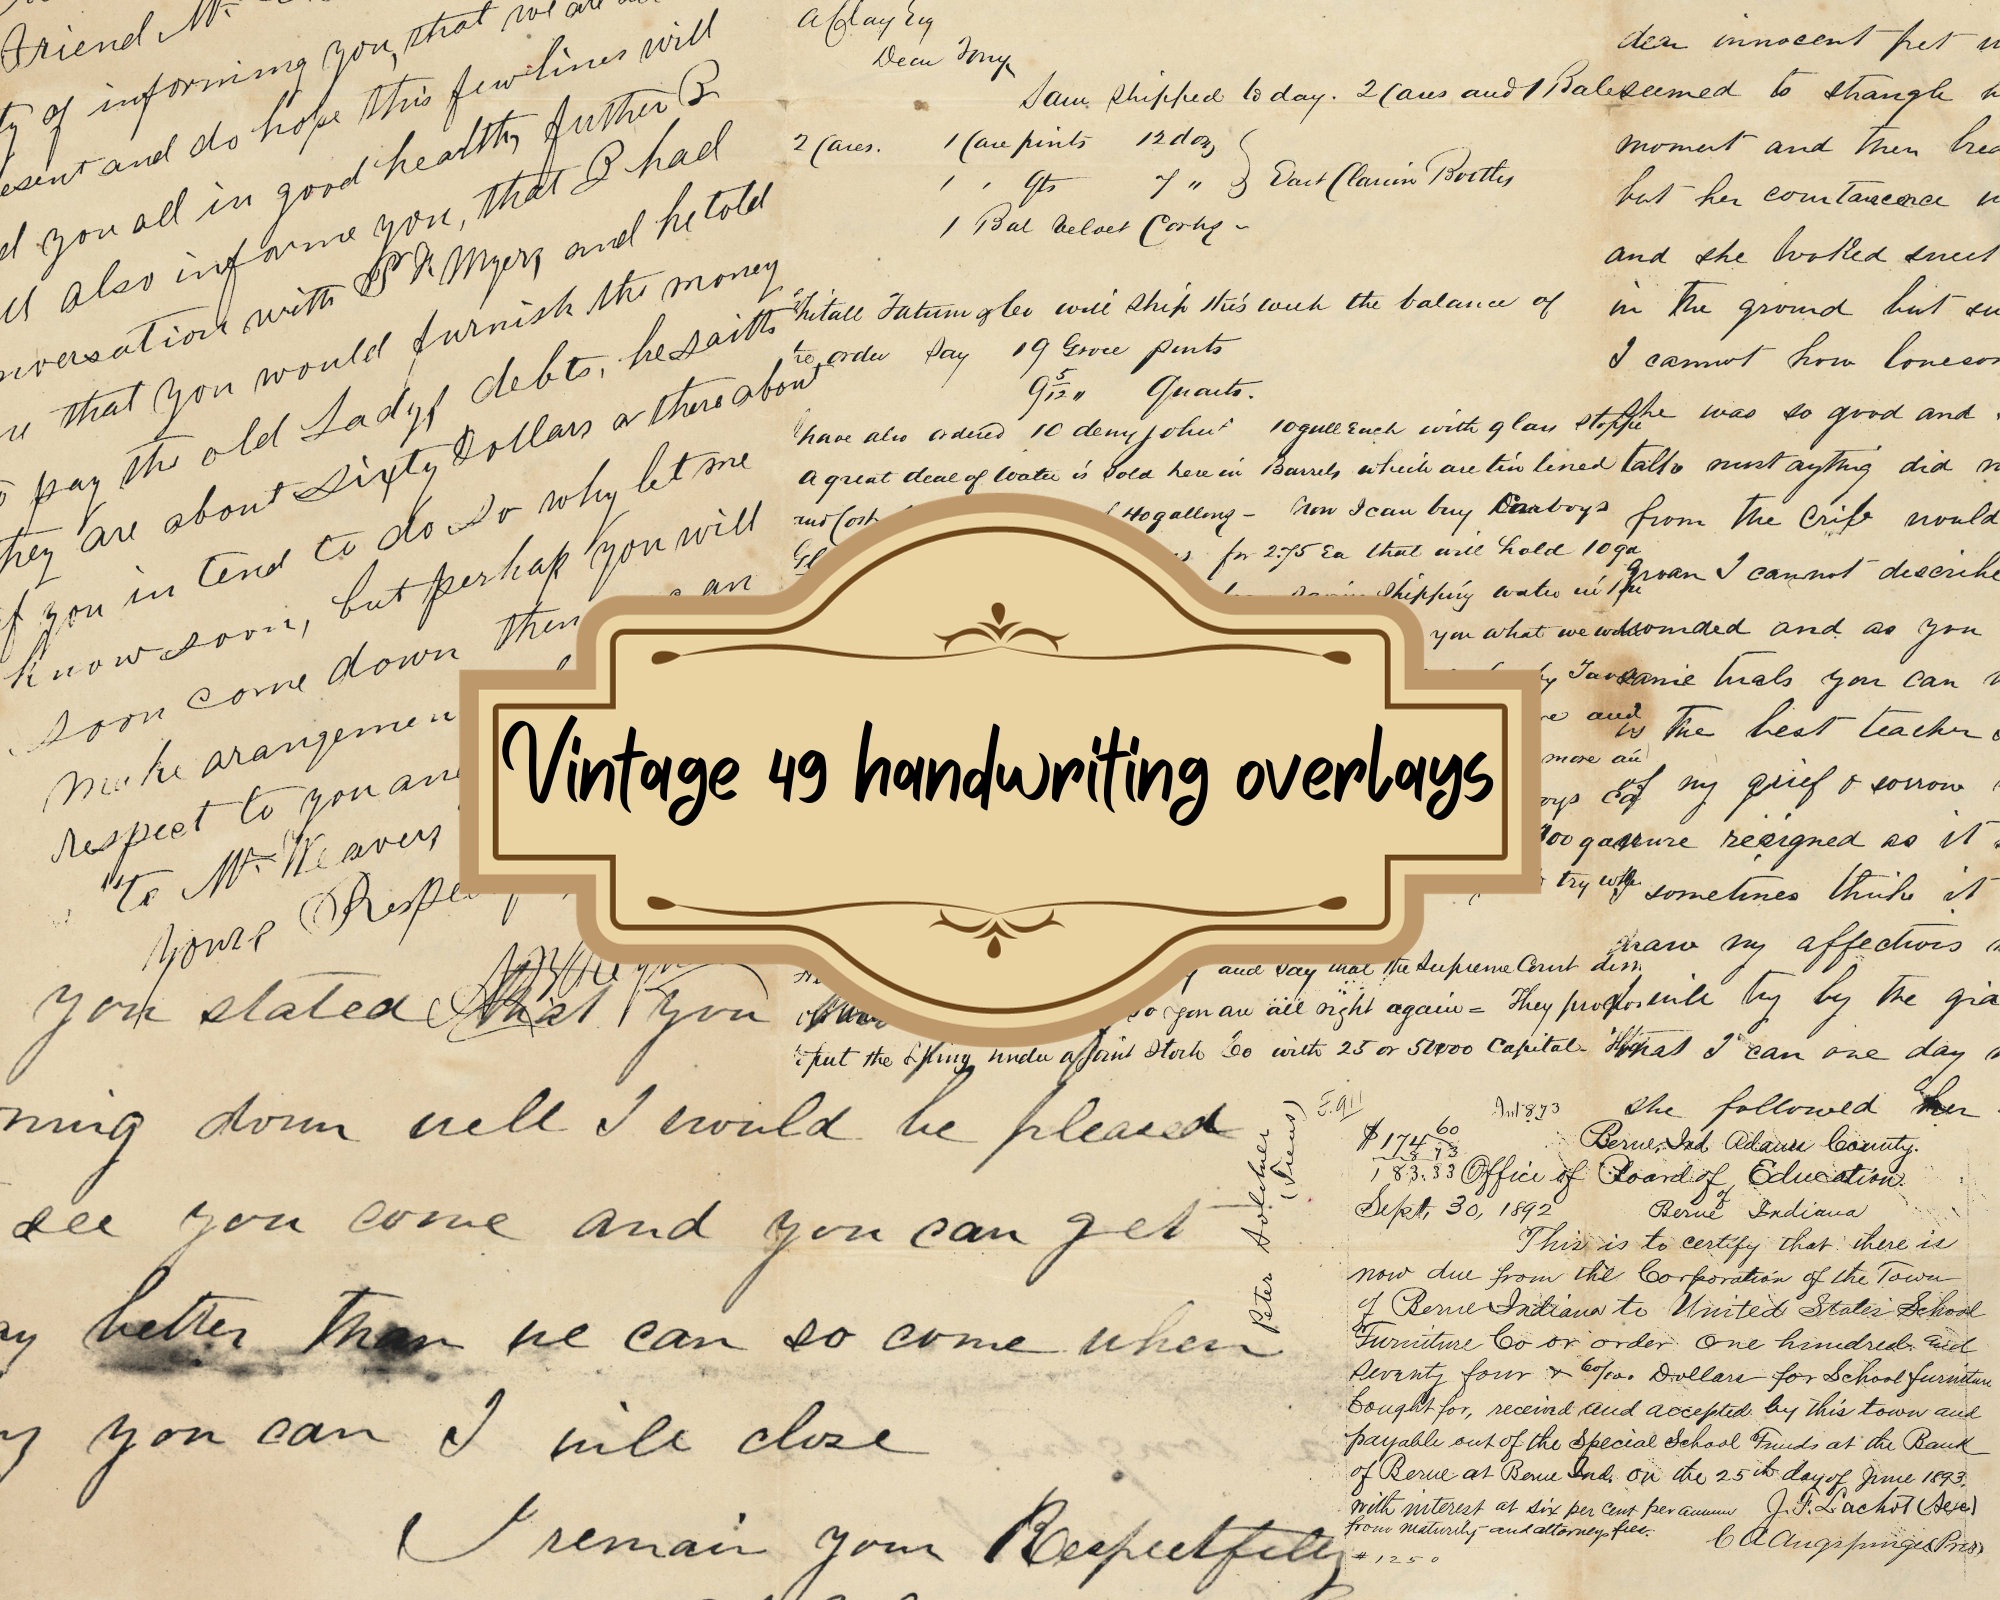 Friend Mr.
of informing you, that we are
esent and do hope this few lines will
d you all in good health, further I
also informe you, that I had
nversation with Myers and he told
that you would furnish the money
pay the old Ladys debts, he saith
they are about Sixty Dollars or there about
if you in tend to do So why let me
know soon, but perhaps you will
soon come down then an
make arangemen
respect to you and
to Mr. Weavers
yours Respec
you stated that you
ning down well I would be pleased
see you come and you can get
ay better than we can so come when
y you can I will close
I remain your Respectfully
Dear Tony
Sam shipped to day. 2 Cases and 1 Bale
2 Cases. 1 Case pints 12 doz
1 " qts 7 " East Clarion Bottles
1 Bal Velvet Corks
will ship this week the balance of
order say 19 Groce pints
9 5/12 " Quarts.
have also ordered 10 demy johns 10 gall Each with glass stoppe
A great deal of Water is Sold here in Barrels which are tin lined
and Cost 40 gallons - Now I can buy Carboys
for 2.75 Ea that will hold 10 ga
shipping water in
you what we wd
and
more an
try
and Say that the Supreme Court dism
so you are all right again = They propos
put the Spring under a Joint Stock Co with 25 or 50000 Capital
dear innocent pet
seemed to strangle
moment and then brea
but her countanence
and she looked sweet
in the ground but su
I cannot how loneso
She was so good and
talk nust aything did
from the crib would
groan I cannot describe
wounded and as you
same trials you can
is the best teacher
of my grief & sorrow
more resigned as it
I sometimes think it
draw my affections
will try by the gra
that I can one day
she followed her
Vintage 49 handwriting overlays
Peter Soldner
(Treas)
$174.60
8.73
183.33
Berne, Ind Adams County.
Office of Board of Education
Sept, 30, 1892 of Berne Indiana
This is to certify that there is
now due from the Corporation of the Town
of Berne Indiana to United States School
Furniture Co or order One hundred and
seventy four & 60/100 Dollars for School furniture
bought for, received and accepted by this town and
payable out of the Special School Funds at the Bank
of Berne at Berne Ind. on the 25th day of June 1893
with interest at six per cent per annum J. F. Lachot (Sec)
from maturity and attorneys fees.
C A Augspurger Pres
# 1250